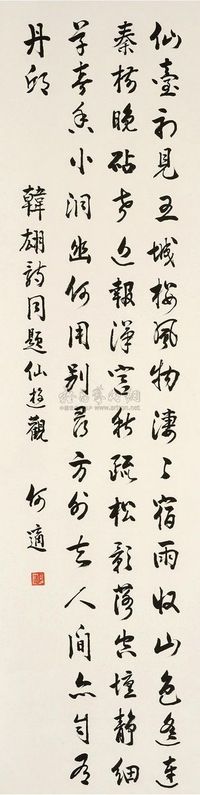 仙臺初見五城樓風物淒〻宿雨收山色遙連
秦樹晚砧聲近報漢宮秋疏松影落空壇靜細
草春香小洞幽何用別尋方外去人間亦自有
丹邱
韓翃詩同題仙遊觀 何適